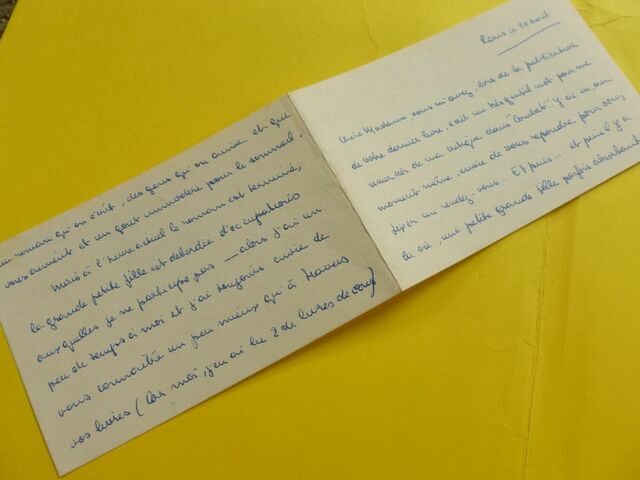 Paris le 20 avril
Chère Madame, vous m'avez, lors de la publication
de votre dernier livre, écrit un très gentil mot pour me
remercier de ma critique dans "Combat". J'ai eu, au
moment même, envie de vous répondre pour vous
fixer un rendez-vous. Et puis... et puis il y a
la vie, une petite grande fille parfois absorbante,
un roman qu'on écrit, des gens qu'on aime et que
vous aiment et un goût immodéré pour le sommeil.
Mais à l'heure actuelle le roman est terminé,
la grande petite fille est débordée d'occupations
auxquelles je ne participe pas — alors j'ai un
peu de temps à moi et j'ai toujours envie de
vous connaître un peu mieux qu'à travers
vos livres (Car moi, j'en ai lu 2 de livres de vous)